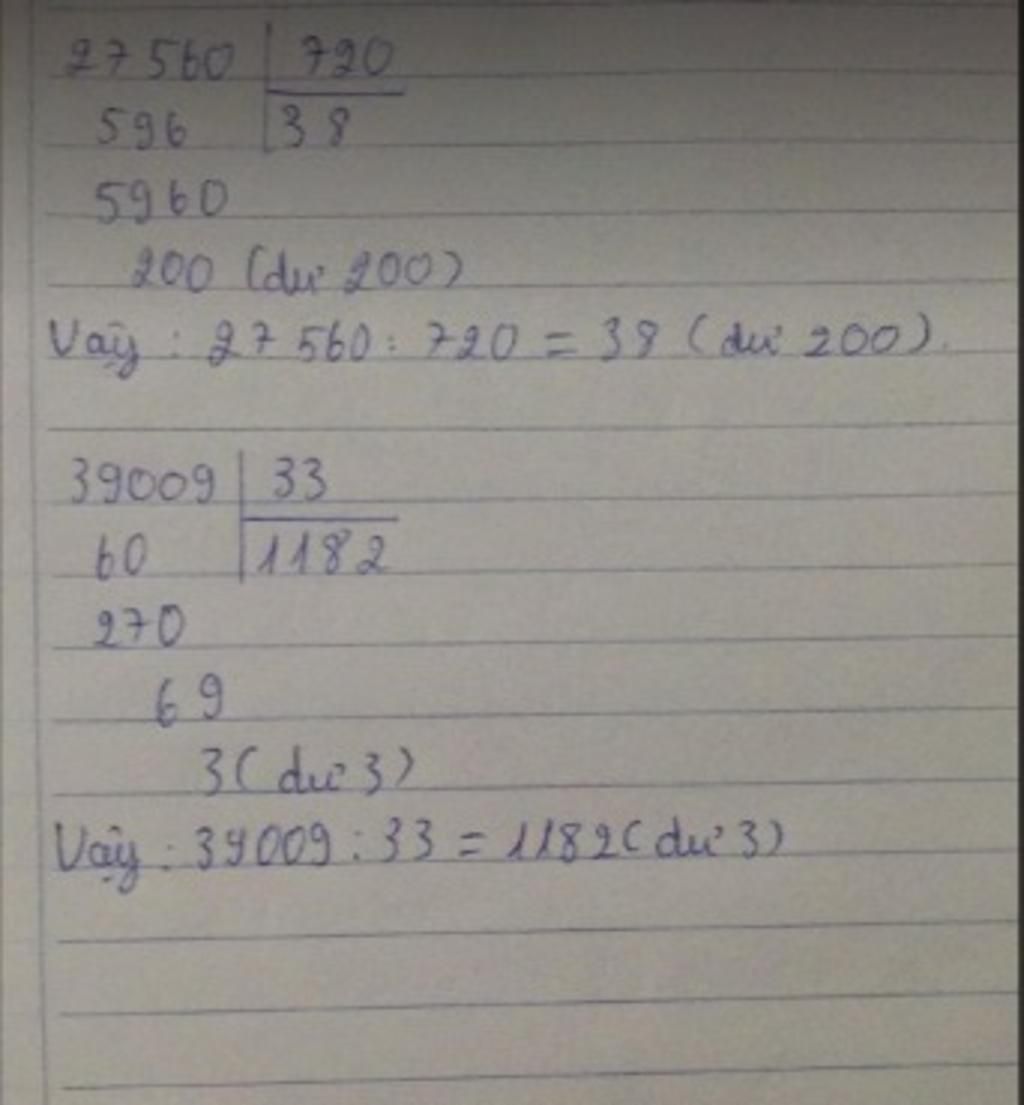 27560 | 720
596 | 38
5960
200 (dư 200)
Vậy : 27 560 : 720 = 38 (dư 200).
39009 | 33
60 | 1182
270
69
3 (dư 3)
Vậy : 39009 : 33 = 1182 (dư 3)